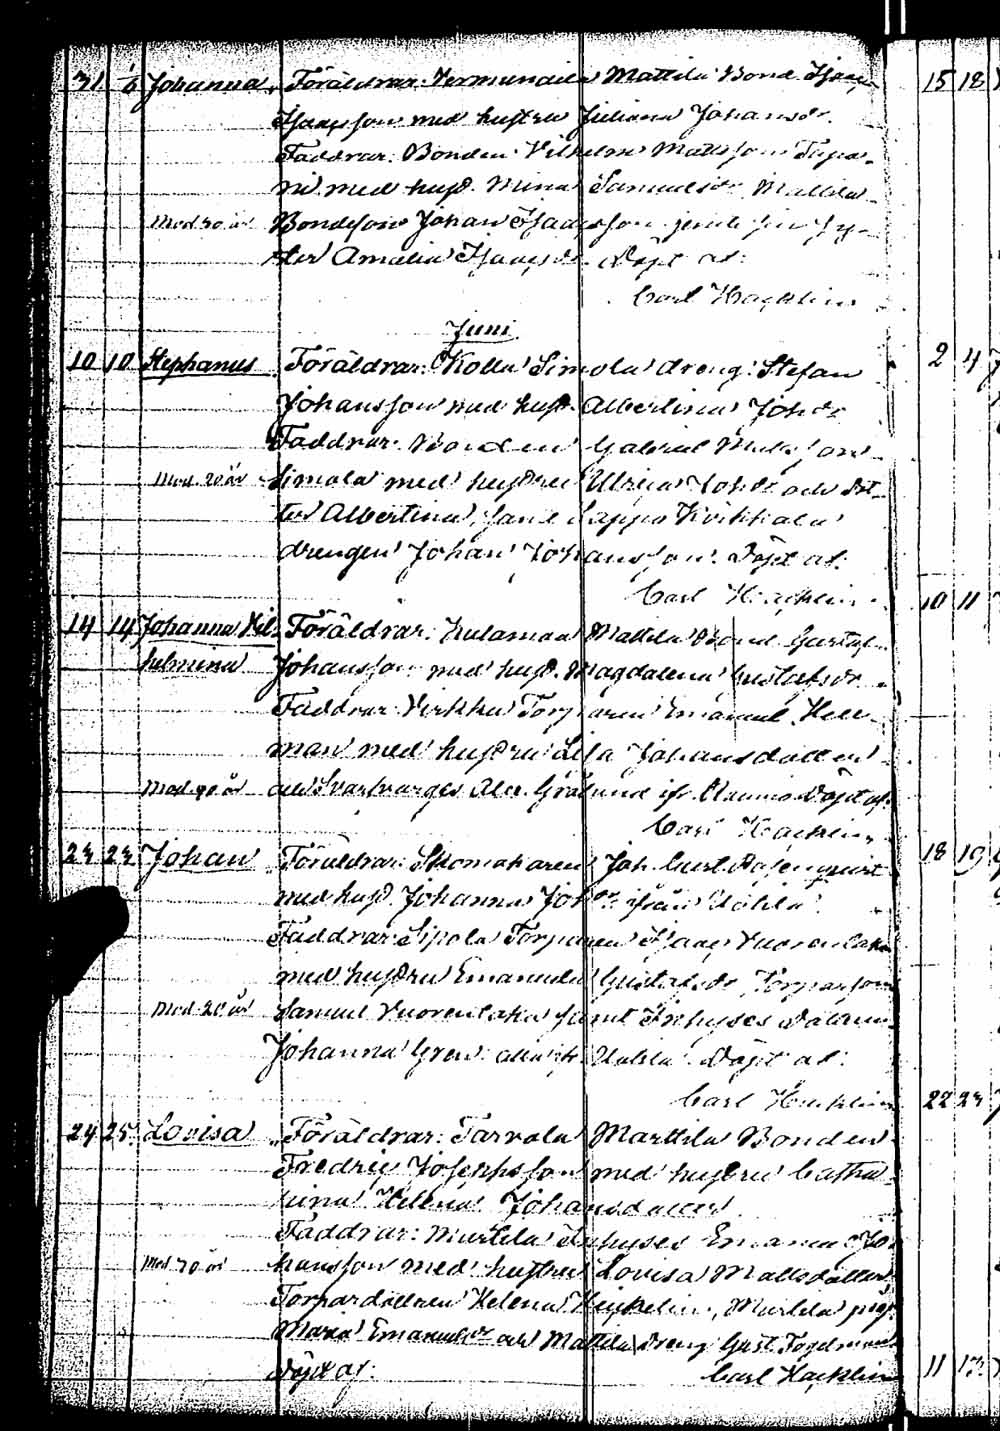 31 1/6 Johanna. Föräldrar: Vermundila Mattila Bond. Isaac
Isaacsson med hustru Juliana Johansdr.
Faddrar: Bonden Vilhelm Mattsson Tapa-
ni med hust. Mina Samuelsdr Mattila
Mod 30 år Bondeson Johan Isaacsson jemte sin sy-
ster Amalia Isaacsdr. Döpt af:
Carl Hacklin
Juni
10 10 Stephanus Föräldrar: Kolla Simola dreng: Stefan
Johansson med hust. Albertina Johdr
Faddrar: Bonden Gabriel Matsson
Mod. 20 år Simola med hustru Ulrica Johdr och dot-
ter Albertina, samt Lappo
drengen Johan Johansson. Döpt af:
Carl Hacklin
14 14 Johanna Vil- Föräldrar: Kulamaa Mattila Bond Gustaf
helmina Johansson med hust. Magdalena Gustafsdr
Faddrar: Virkku Torparen Emanuel Hell-
man med hustru Lisa Johansdotter
Mod. 40 år och Svartvarfvs Alex. Grölund ifr. Raumo. Döpt af:
Carl Hacklin
23 23 Johan Föräldrar: Skomakaren Joh. Gust. Rosenqvist
med hust. Johanna Johdr. ifrån
Faddrar: Sipola Torparen Isaac Vuorenlaka
med hustru Emanuela Gustafsdr, Torparson
Mod. 20 år Samuel Vuorenlaka samt Inhyses
Johanna Gren: alla ifr. Döpt af:
Carl Hacklin
24 25 Lovisa Föräldrar: Tarvola Marttila Bonden
Fredric Josephsson med hustru Catha-
rina Helena Johansdotter
Faddrar: Marttila Inhyses Emanuel Jo-
Mod 30 år hansson med hustru Lovisa Mattsdotter
Torpardottren Helena Heickelin, Martila pig.
Maria Emanuelsdr och Mattila dreng Gust.
Döpt af: Carl Hacklin
15 18
2 4
10 11
18 19
22 23
11 13